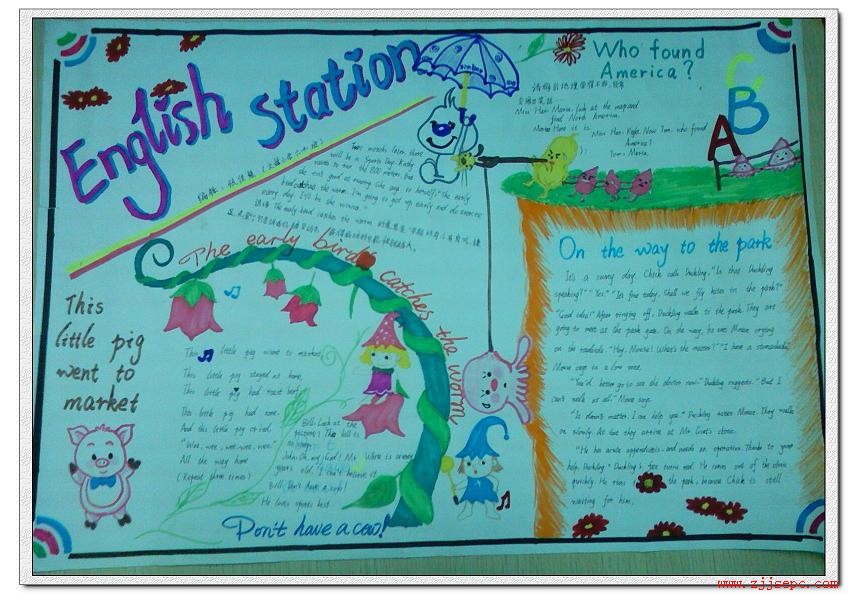 English Station
Two months later there
will be a Sports Day. Kathy
wants to run the 800 meters. But
she isn't good at running. She says to herself, "the early
bird catches the worm. I'm going to get up early and do exercise
every day. I'll be the winner."
The early bird catches the worm.
Who found
America?
Miss Hai: Maria, find at the map and
find North America.
Maria: Here it is.
Miss Hai: Right. Now Tom, who found
America?
Tom: Maria.
A B C
The early bird catches the worm
This
little pig
went to
market
This little pig went to market
This little pig stayed at home,
This little pig had roast beef
This little pig had none.
And this little pig cried
"Wee, wee, wee, wee."
All the way home
(Repeat three times)
Bill: Look at the
John: Oh, my God! Mr. White is ninety
years old. I can't believe it
Bill: Don't have a cow!
Don't have a cow!
On the way to the park
It's a sunny day. Chick calls Duckling. "Is that Duckling
speaking?" "Yes." "It's fine today. Shall we fly kites in the park?"
"Good idea!" After ringing off, Duckling walks to the park. They are
going to meet at the park gate. On the way, he sees Mouse crying
on the roadside. "Hey, Mouse! What's the matter?" "I have a stomachache,"
Mouse says in a low voice.
"You'd better go to see the doctor now." Duckling suggests. "But I
can't walk at all." Mouse says.
"It doesn't matter. I can help you." Duckling says. They walk
on slowly. At last they arrive at Mr. Goat's store.
"He has acute appendicitis and needs an operation. Thanks to your
help, Duckling." Duckling's face turns red. He runs out of the store
quickly. He runs to the park, because Chick is still
waiting for him.
www.zjjsepc.com